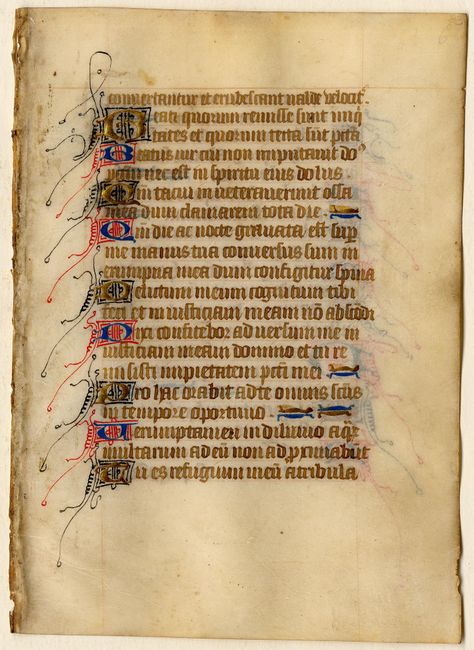 conuertantur et erubescant ualde velocit
Beati quorum remisse sunt iniq
tates et quorum tecta sūt pcta
Beatus uir cui non imputauit do
pctm nec est in spiritu eius dolus
Qm tacui inueterauerunt ossa
mea dum clamarem tota die
Qm die ac nocte grauata est sup
me manus tua conuersus sum in
erumpna mea dum configitur spina
Delictum meum cognitum tibi
feci et iniusticiam meam nō abscōdi
Dixi confitebor aduersum me in
iusticiam meam domino et tu re
misisti impietatem pcti mei
Pro hac orabit ad te omnis sctus
in tempore oportuno
Verumptamen in diluuio aqr
multarum ad eū non adproximabūt
Tu es refugium meū a tribula